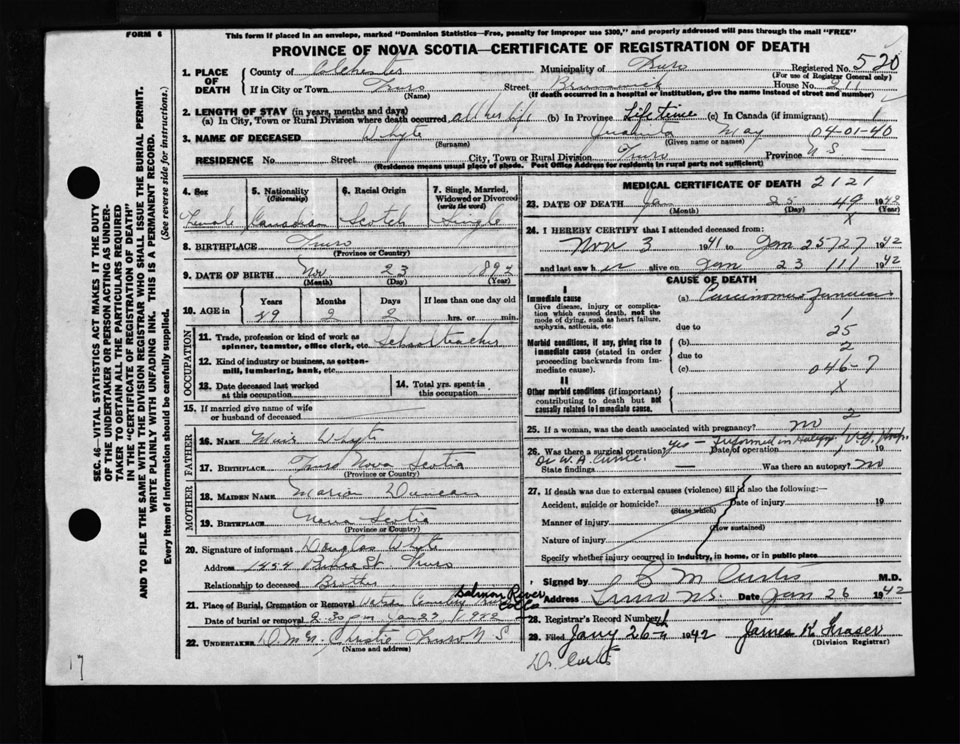 FORM 6
This form if placed in an envelope, marked "Dominion Statistics—Free, penalty for improper use $300," and properly addressed will pass through the mail "FREE"
PROVINCE OF NOVA SCOTIA—CERTIFICATE OF REGISTRATION OF DEATH
SEC. 46—VITAL STATISTICS ACT MAKES IT THE DUTY
OF THE UNDERTAKER OR PERSON ACTING AS UNDER-
TAKER TO OBTAIN ALL THE PARTICULARS REQUIRED
IN THE "CERTIFICATE OF REGISTRATION OF DEATH"
AND TO FILE THE SAME WITH THE DIVISION REGISTRAR WHO SHALL ISSUE THE BURIAL PERMIT.
WRITE PLAINLY WITH UNFADING INK. THIS IS A PERMANENT RECORD.
Every item of information should be carefully supplied. (See reverse side for instructions.)
1. PLACE OF DEATH County of Colchester Municipality of Truro Registered No. 520
(For use of Registrar General only)
If in City or Town Truro Street Brunswick House No. 211
(Name) (If death occurred in a hospital or institution, give the name instead of street and number)
2. LENGTH OF STAY (in years, months and days)
(a) In City, Town or Rural Division where death occurred all her life (b) In Province Lifetime (c) In Canada (if immigrant) 1
3. NAME OF DECEASED Whyte Juanita May 04-01-40
(Surname) (Given name or names)
RESIDENCE No. Street City, Town or Rural Division Truro Province N S
(Residence means usual place of abode. Post Office Address for residents in rural parts not sufficient)
4. Sex Female
5. Nationality (Citizenship) Canadian
6. Racial Origin Scotch
7. Single, Married, Widowed or Divorced (write the word) Single
8. BIRTHPLACE Truro
(Province or Country)
9. DATE OF BIRTH Nov 23 1892
(Month) (Day) (Year)
10. AGE in Years Months Days If less than one day old
49 2 2 hrs. or min.
OCCUPATION
11. Trade, profession or kind of work as spinner, teamster, office clerk, etc. Schoolteacher
12. Kind of industry or business, as cotton-mill, lumbering, bank, etc.
13. Date deceased last worked at this occupation
14. Total yrs. spent in this occupation
15. If married give name of wife or husband of deceased
FATHER
16. NAME Muir Whyte
17. BIRTHPLACE Truro Nova Scotia
(Province or Country)
MOTHER
18. MAIDEN NAME Marion Duncan
19. BIRTHPLACE Nova Scotia
(Province or Country)
20. Signature of informant Douglas Whyte
Address St. Truro
Relationship to deceased Brother
21. Place of Burial, Cremation or Removal Cemetery Salmon River Col Co
Date of burial or removal 2.30 pm Jan 27 1942
22. UNDERTAKER Christie Truro N S
(Name and address)
17
MEDICAL CERTIFICATE OF DEATH 2121
23. DATE OF DEATH Jan 25 49 1942
(Month) (Day) (Year)
X
24. I HEREBY CERTIFY that I attended deceased from:
Nov 3 1941 to Jan 25/27 1942
and last saw her alive on Jan 23 111 1942
CAUSE OF DEATH
I
Immediate cause
Give disease, injury or complication which caused death, not the mode of dying, such as heart failure, asphyxia, asthenia, etc.
(a) Carcinoma Pancreas
due to 1
25
Morbid conditions, if any, giving rise to immediate cause (stated in order proceeding backwards from immediate cause).
(b) 2
due to
(c) 046-7
II
Other morbid conditions (if important) contributing to death but not causally related to immediate cause. X
2
25. If a woman, was the death associated with pregnancy? no
26. Was there a surgical operation? yes Date of operation
Performed in Halifax
Dr W. A. Curtis.
State findings — Was there an autopsy? no
27. If death was due to external causes (violence) fill in also the following:—
Accident, suicide or homicide? Date of injury 19
(State which)
Manner of injury (How sustained)
Nature of injury
Specify whether injury occurred in industry, in home, or in public place
Signed by C M Curtis M.D.
Address Truro N.S. Date Jan 26 1942
28. Registrar's Record Number
29. Filed Jany 26th 1942 James K Fraser
(Division Registrar)
Dr. Curtis